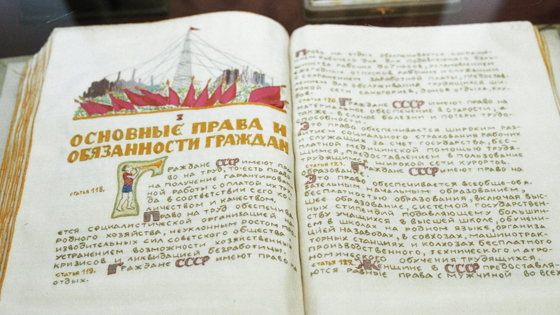 I
ОСНОВНЫЕ ПРАВА И
ОБЯЗАННОСТИ ГРАЖДАН
СТАТЬЯ 118.
ГРАЖДАНЕ СССР ИМЕЮТ ПРА-
ВО НА ТРУД, ТО-ЕСТЬ ПРАВО
НА ПОЛУЧЕНИЕ ГАРАНТИРОВАН-
НОЙ РАБОТЫ С ОПЛАТОЙ ИХ ТРУ-
ДА В СООТВЕТСТВИИ С ЕГО КО-
ЛИЧЕСТВОМ И КАЧЕСТВОМ.
ПРАВО НА ТРУД ОБЕСПЕЧИВА-
ЕТСЯ СОЦИАЛИСТИЧЕСКОЙ ОРГАНИЗАЦИЕЙ НА-
РОДНОГО ХОЗЯЙСТВА, НЕУКЛОННЫМ РОСТОМ ПРО-
ИЗВОДИТЕЛЬНЫХ СИЛ СОВЕТСКОГО ОБЩЕСТВА,
УСТРАНЕНИЕМ ВОЗМОЖНОСТИ ХОЗЯЙСТВЕННЫХ
КРИЗИСОВ И ЛИКВИДАЦИЕЙ БЕЗРАБОТИЦЫ.
СТАТЬЯ 119. ГРАЖДАНЕ СССР ИМЕЮТ ПРАВО НА
ОТДЫХ.
ПРАВО НА ОТДЫХ ОБЕСПЕЧИВАЕТСЯ
СТАТЬЯ 120. ГРАЖДАНЕ СССР ИМЕЮТ ПРАВО НА
В СТАРОСТИ, А
ТАКЖЕ В СЛУЧАЕ БОЛЕЗНИ И ПОТЕРИ ТРУДО-
СПОСОБНОСТИ.
ЭТО ПРАВО ОБЕСПЕЧИВАЕТСЯ ШИРОКИМ РАЗВИ-
ТИЕМ СОЦИАЛЬНОГО СТРАХОВАНИЯ РАБОЧИХ
И СЛУЖАЩИХ ЗА СЧЕТ ГОСУДАРСТВА, БЕС-
ПЛАТНОЙ МЕДИЦИНСКОЙ ПОМОЩЬЮ ТРУДЯ-
ЩИМСЯ, ПРЕДОСТАВЛЕНИЕМ В ПОЛЬЗОВАНИЕ
ТРУДЯЩИМСЯ ШИРОКОЙ СЕТИ КУРОРТОВ.
СТАТЬЯ 121. ГРАЖДАНЕ СССР ИМЕЮТ ПРАВО НА
ОБРАЗОВАНИЕ.
ЭТО ПРАВО ОБЕСПЕЧИВАЕТСЯ ВСЕОБЩЕ-ОБЯ-
ЗАТЕЛЬНЫМ НАЧАЛЬНЫМ ОБРАЗОВАНИЕМ,
БЕСПЛАТНОСТЬЮ ОБРАЗОВАНИЯ, ВКЛЮЧАЯ ВЫС-
ШЕЕ ОБРАЗОВАНИЕ, СИСТЕМОЙ ГОСУДАРСТВЕН-
НЫХ СТИПЕНДИЙ ПОДАВЛЯЮЩЕМУ БОЛЬШИН-
СТВУ УЧАЩИХСЯ В ВЫСШЕЙ ШКОЛЕ, ОБУЧЕНИ-
ЕМ В ШКОЛАХ НА РОДНОМ ЯЗЫКЕ, ОРГАНИЗА-
ЦИЕЙ НА ЗАВОДАХ, В СОВХОЗАХ, МАШИНОТРАК-
ТОРНЫХ СТАНЦИЯХ И КОЛХОЗАХ БЕСПЛАТНОГО
ПРОИЗВОДСТВЕННОГО, ТЕХНИЧЕСКОГО И АГРО-
НОМИЧЕСКОГО ОБУЧЕНИЯ ТРУДЯЩИХСЯ.
СТАТЬЯ 122. ЖЕНЩИНЕ В СССР ПРЕДОСТАВЛЯ-
ЮТСЯ РАВНЫЕ ПРАВА С МУЖЧИНОЙ ВО ВСЕХ